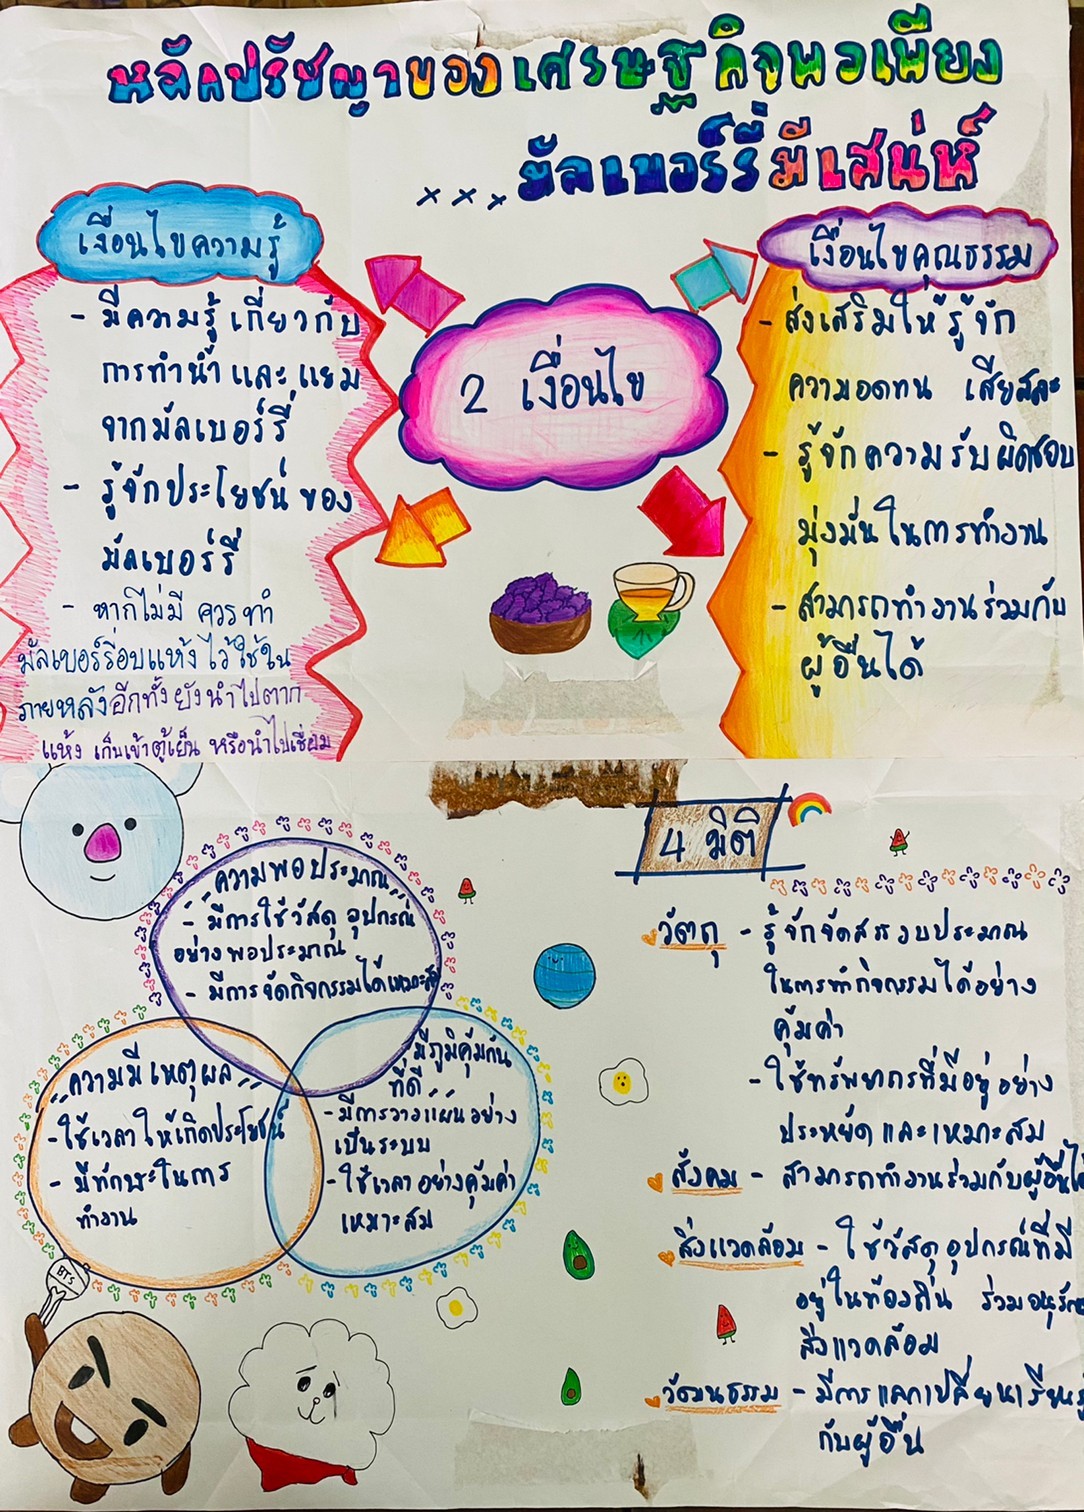 หลักปรัชญาของเศรษฐกิจพอเพียง
...มัลเบอร์รี่มีเสน่ห์
เงื่อนไขความรู้
- มีความรู้เกี่ยวกับ
การทำน้ำและแยม
จากมัลเบอร์รี่
- รู้จักประโยชน์ของ
มัลเบอร์รี่
- หากไม่มี ควรทำ
มัลเบอร์รี่อบแห้งไว้ใช้ใน
ภายหลังอีกทั้งยังนำไปตาก
แห้ง เก็บเข้าตู้เย็น หรือนำไปเชื่อม
2 เงื่อนไข
เงื่อนไขคุณธรรม
- ส่งเสริมให้รู้จัก
ความอดทน เสียสละ
- รู้จักความรับผิดชอบ
มุ่งมั่นในการทำงาน
- สามารถทำงานร่วมกับ
ผู้อื่นได้
ความพอประมาณ
- มีการใช้วัสดุ อุปกรณ์
อย่างพอประมาณ
- มีการจัดกิจกรรมได้เหมาะสม
ความมีเหตุผล
- ใช้เวลาให้เกิดประโยชน์
- มีทักษะในการ
ทำงาน
มีภูมิคุ้มกัน
ที่ดี
- มีการวางแผนอย่าง
เป็นระบบ
- ใช้เวลาอย่างคุ้มค่า
เหมาะสม
BTS
4 มิติ
วัตถุ - รู้จักจัดสรรงบประมาณ
ในการทำกิจกรรมได้อย่าง
คุ้มค่า
- ใช้ทรัพยากรที่มีอยู่อย่าง
ประหยัดและเหมาะสม
สังคม - สามารถทำงานร่วมกับผู้อื่นได้
สิ่งแวดล้อม - ใช้วัสดุอุปกรณ์ที่มี
อยู่ในท้องถิ่น ร่วมอนุรักษ์
สิ่งแวดล้อม
วัฒนธรรม - มีการแลกเปลี่ยนเรียนรู้
กับผู้อื่น